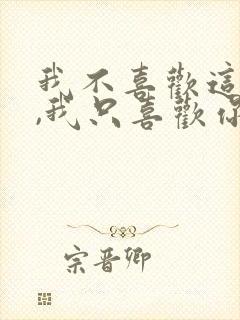 我不喜歡這
,我只喜歡你
宗晋卿